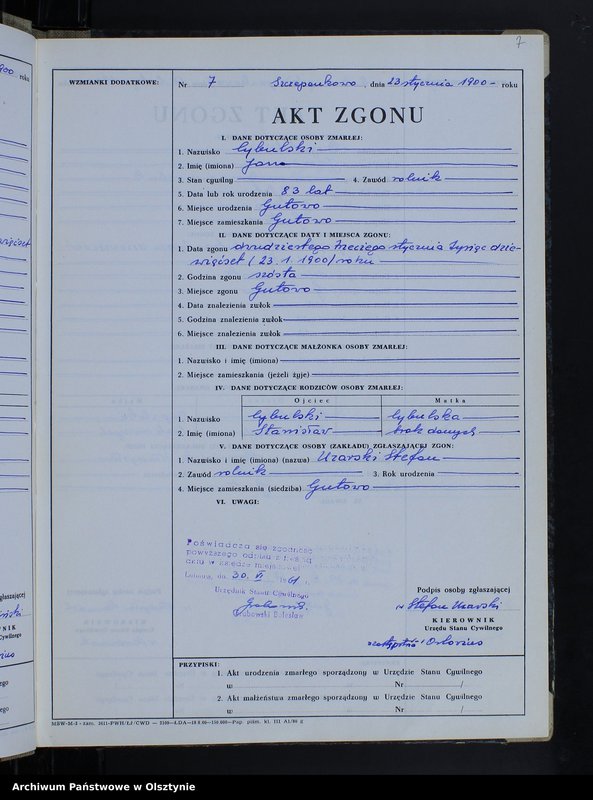 7
WZMIANKI DODATKOWE:
Nr 7 Szczepankowo, dnia 23 stycznia 1900 - roku
AKT ZGONU
I. DANE DOTYCZĄCE OSOBY ZMARŁEJ:
1. Nazwisko Cybulski
2. Imię (imiona) Jan
3. Stan cywilny 4. Zawód rolnik
5. Data lub rok urodzenia 83 lat
6. Miejsce urodzenia Gutowo
7. Miejsce zamieszkania Gutowo
II. DANE DOTYCZĄCE DATY I MIEJSCA ZGONU:
1. Data zgonu dwudziestego trzeciego stycznia tysiąc dzie-
więćset (23. 1. 1900) roku
2. Godzina zgonu szósta
3. Miejsce zgonu Gutowo
4. Data znalezienia zwłok
5. Godzina znalezienia zwłok
6. Miejsce znalezienia zwłok
III. DANE DOTYCZĄCE MAŁŻONKA OSOBY ZMARŁEJ:
1. Nazwisko i imię (imiona)
2. Miejsce zamieszkania (jeżeli żyje)
IV. DANE DOTYCZĄCE RODZICÓW OSOBY ZMARŁEJ:
Ojciec Matka
1. Nazwisko Cybulski Cybulska
2. Imię (imiona) Stanisław brak danych
V. DANE DOTYCZĄCE OSOBY (ZAKŁADU) ZGŁASZAJĄCEJ ZGON:
1. Nazwisko i imię (imiona) (nazwa) Uzarski Stefan
2. Zawód rolnik 3. Rok urodzenia
4. Miejsce zamieszkania (siedziba) Gutowo
VI. UWAGI:
Poświadcza się zgodność
powyższego odpisu z treścią
aktu w księdze miejscowej
Lubawa, dn. 30. VI 1961 r.
Urzędnik Stanu Cywilnego
Grabowski Bolesław
Podpis osoby zgłaszającej
Stefan Uzarski
KIEROWNIK
Urzędu Stanu Cywilnego
PRZYPISKI:
1. Akt urodzenia zmarłego sporządzony w Urzędzie Stanu Cywilnego
w Nr /
2. Akt małżeństwa zmarłego sporządzony w Urzędzie Stanu Cywilnego
w Nr /
Archiwum Państwowe w Olsztynie